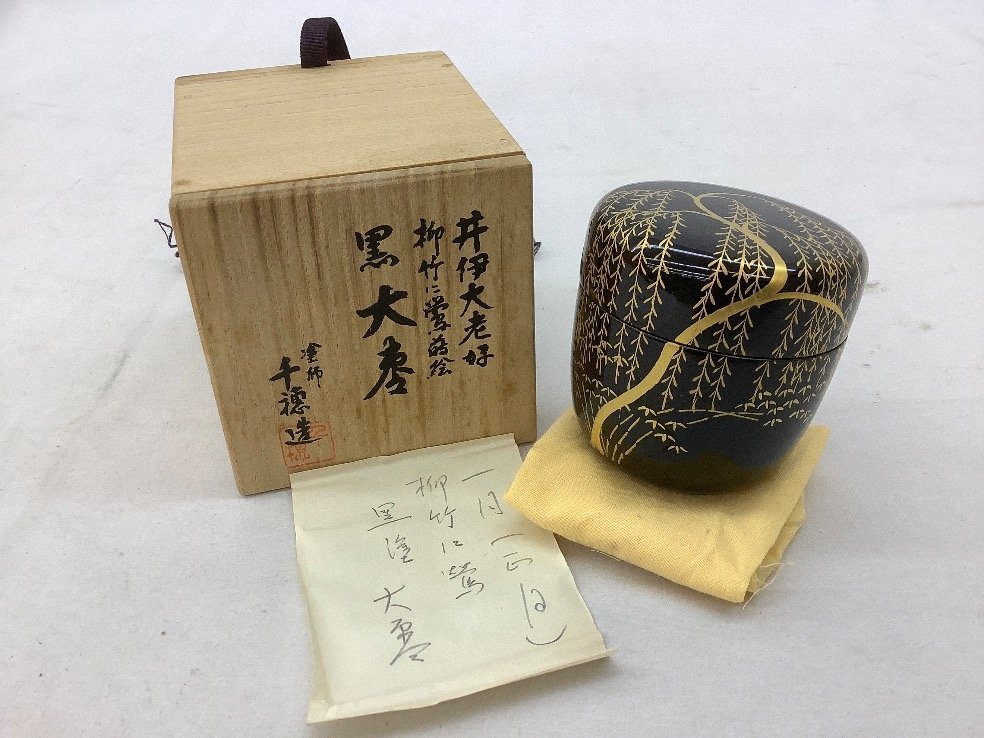 井伊大老好
柳竹に鶯蒔絵
黒大棗
塗師
千穂造
一月(正月)
柳竹に鶯
黒塗大棗